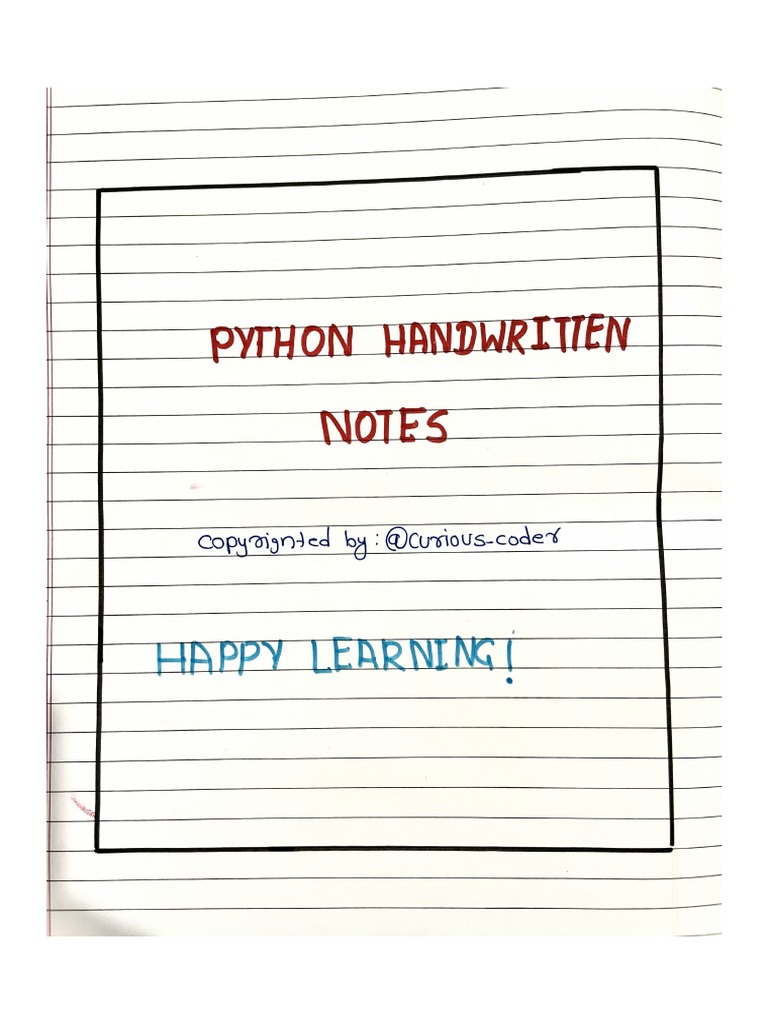 PYTHON HANDWRITTEN
NOTES
Copyrighted by: @curious_coder
HAPPY LEARNING!